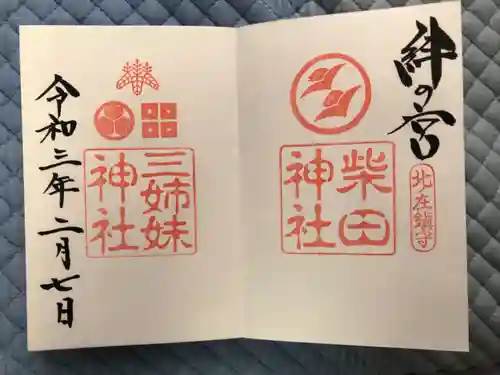 絆の宮
北在鎮守
柴田
神社
三姉妹
神社
令和三年二月七日